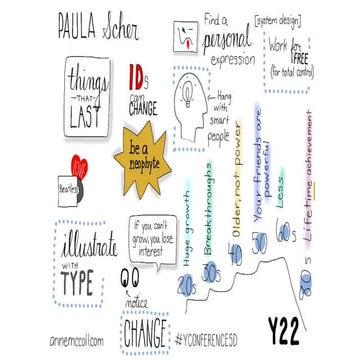 PAULA Scher
Find a
personal
expression
[system design]
Work for
FREE
(for total control)
things
THAT
LAST
IDs
can
CHANGE
Hang
with
smart
people
be a
neophyte
Beatles
illustrate
WITH
TYPE
If you can't
grow, you lose
interest
notice
CHANGE
Huge growth
Breakthroughs
Older, not power
Your friends are
powerful
Less
Lifetime achievement
20s
30s
40s
50s
60s
annemccoll.com
#YCONFERENCESD
Y22